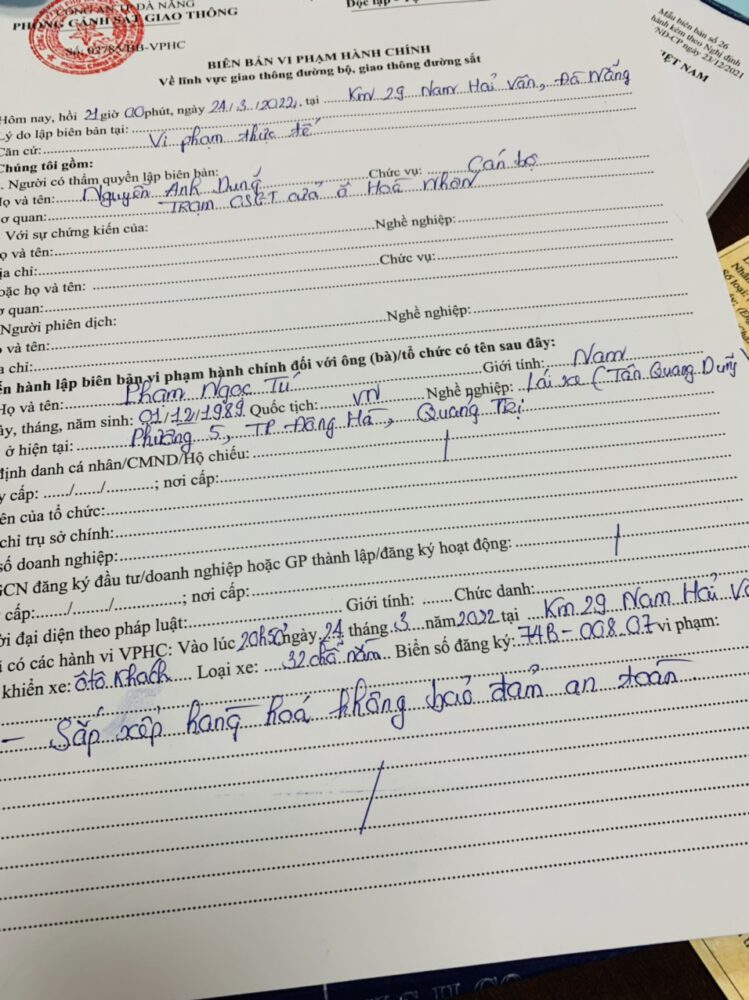 CÔNG AN TP ĐÀ NẴNG
PHÒNG CẢNH SÁT GIAO THÔNG
Độc lập -
/BB-VPHC
Mẫu biên bản số 26
hành kèm theo Nghị định
NĐ-CP ngày 23/12/2021
VIỆT NAM
BIÊN BẢN VI PHẠM HÀNH CHÍNH
Về lĩnh vực giao thông đường bộ, giao thông đường sắt
Hôm nay, hồi 21 giờ 00 phút, ngày 21/3/2022, tại Km 29 Nam Hải Vân, Đà Nẵng
Lý do lập biên bản tại:
Căn cứ: Vi phạm thực tế
Chúng tôi gồm:
. Người có thẩm quyền lập biên bản:
Họ và tên: Nguyễn Anh Dũng Chức vụ: Cán bộ
ơ quan: Trạm CSGT cửa ô Hoà Nhơn
Với sự chứng kiến của:
ọ và tên: Nghề nghiệp:
ịa chỉ:
oặc họ và tên: Chức vụ:
ơ quan:
Người phiên dịch:
và tên: Nghề nghiệp:
a chỉ:
ến hành lập biên bản vi phạm hành chính đối với ông (bà)/tổ chức có tên sau đây:
Họ và tên: Phạm Ngọc Tú Giới tính: Nam
ày, tháng, năm sinh: 01/12/1989 Quốc tịch: VN Nghề nghiệp: Lái xe (Tân Quang Dũng
ở hiện tại: Phường 5, TP Đông Hà, Quảng Trị
định danh cá nhân/CMND/Hộ chiếu:
y cấp: ....../....../..........; nơi cấp:
ên của tổ chức:
chỉ trụ sở chính:
số doanh nghiệp:
GCN đăng ký đầu tư/doanh nghiệp hoặc GP thành lập/đăng ký hoạt động:
cấp:......./......./..............; nơi cấp:
ời đại diện theo pháp luật: Giới tính: ...... Chức danh:
i có các hành vi VPHC: Vào lúc 20h50 ngày 21 tháng 3 năm 2022 tại Km 29 Nam Hải Vâ
khiển xe: ôtô khách Loại xe: 32 chỗ nằm Biển số đăng ký: 74B-008.07 vi phạm:
- Sắp xếp hàng hoá không bảo đảm an toàn